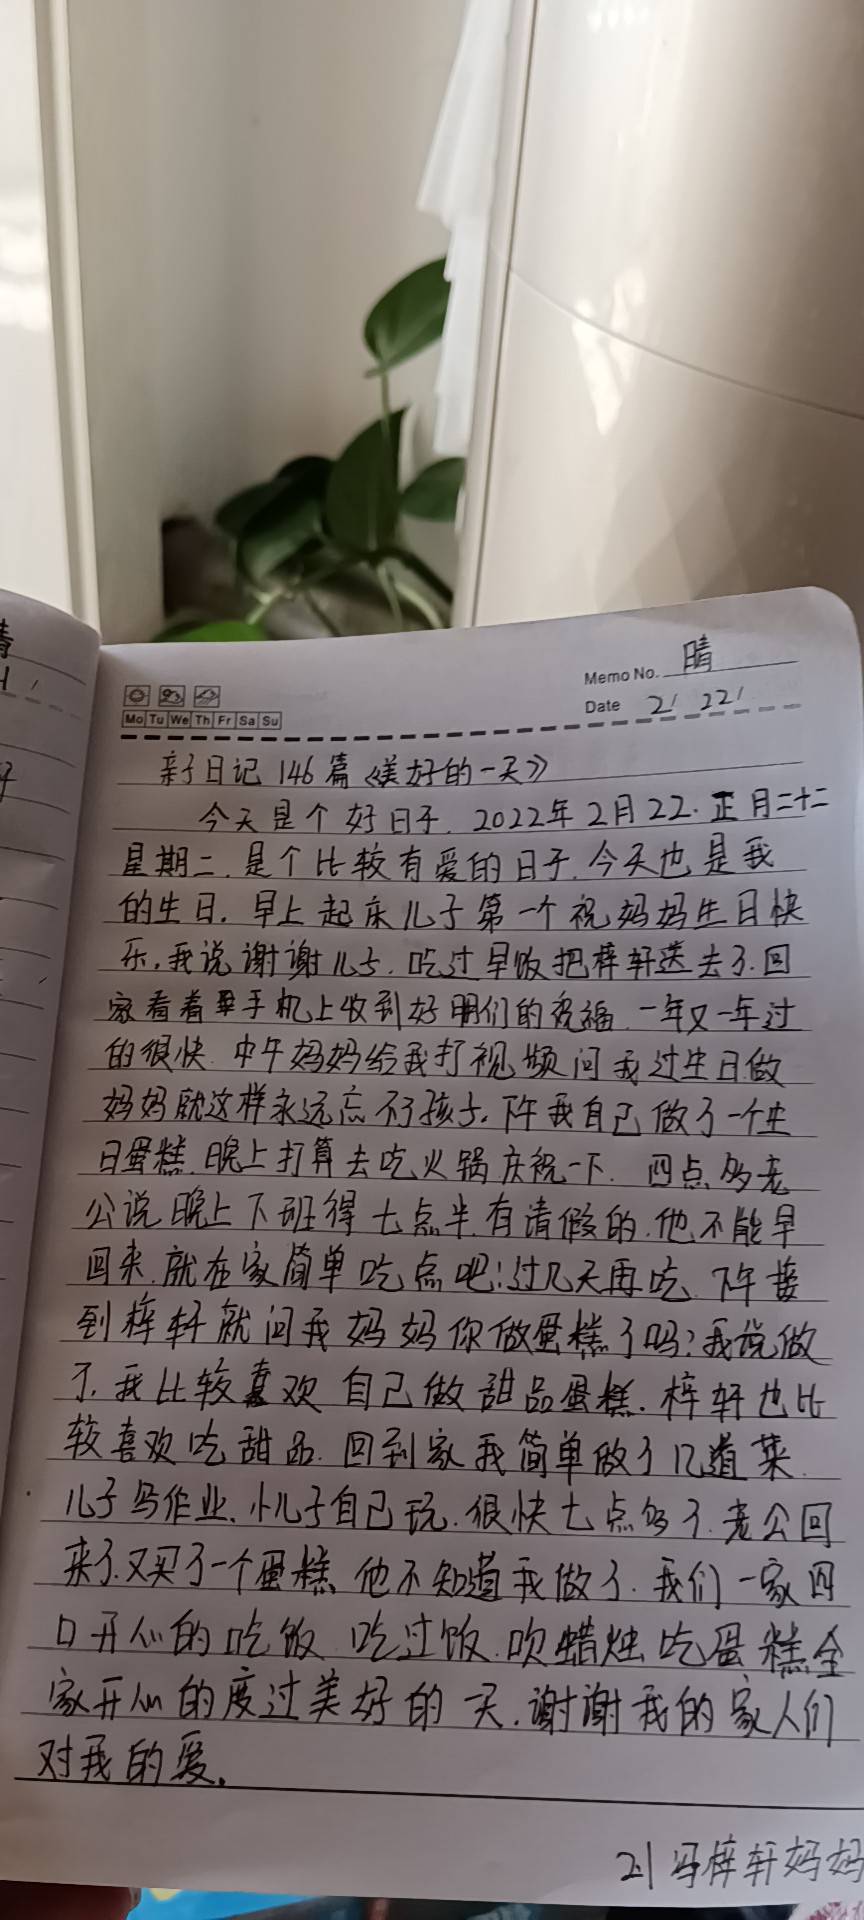 晴
Memo No. 晴
Mo Tu We Th Fr Sa Su
Date 2/ 22/
亲子日记146篇《美好的一天》
今天是个好日子.2022年2月22.正月二十二
星期二.是个比较有爱的日子.今天也是我
的生日.早上起床儿子第一个祝妈妈生日快
乐,我说谢谢儿子.吃过早饭把梓轩送去了.回
家看着手机上收到好朋们的祝福.一年又一年过
的很快.中午妈妈给我打视频问我过生日做
妈妈就这样永远忘不了孩子.下午我自己做了一个生
日蛋糕.晚上打算去吃火锅庆祝一下.四点多老
公说晚上下班得七点半.有请假的.他不能早
回来.就在家简单吃点吧!过几天再吃.下午接
到梓轩就问我妈妈你做蛋糕了吗?我说做
了.我比较喜欢自己做甜品蛋糕.梓轩也比
较喜欢吃甜品.回到家我简单做了几道菜.
儿子写作业.小儿子自己玩.很快七点多了.老公回
来了.又买了一个蛋糕.他不知道我做了.我们一家四
口开心的吃饭.吃过饭.吹蜡烛吃蛋糕全
家开心的度过美好的一天.谢谢我的家人们
对我的爱.
21冯梓轩妈妈